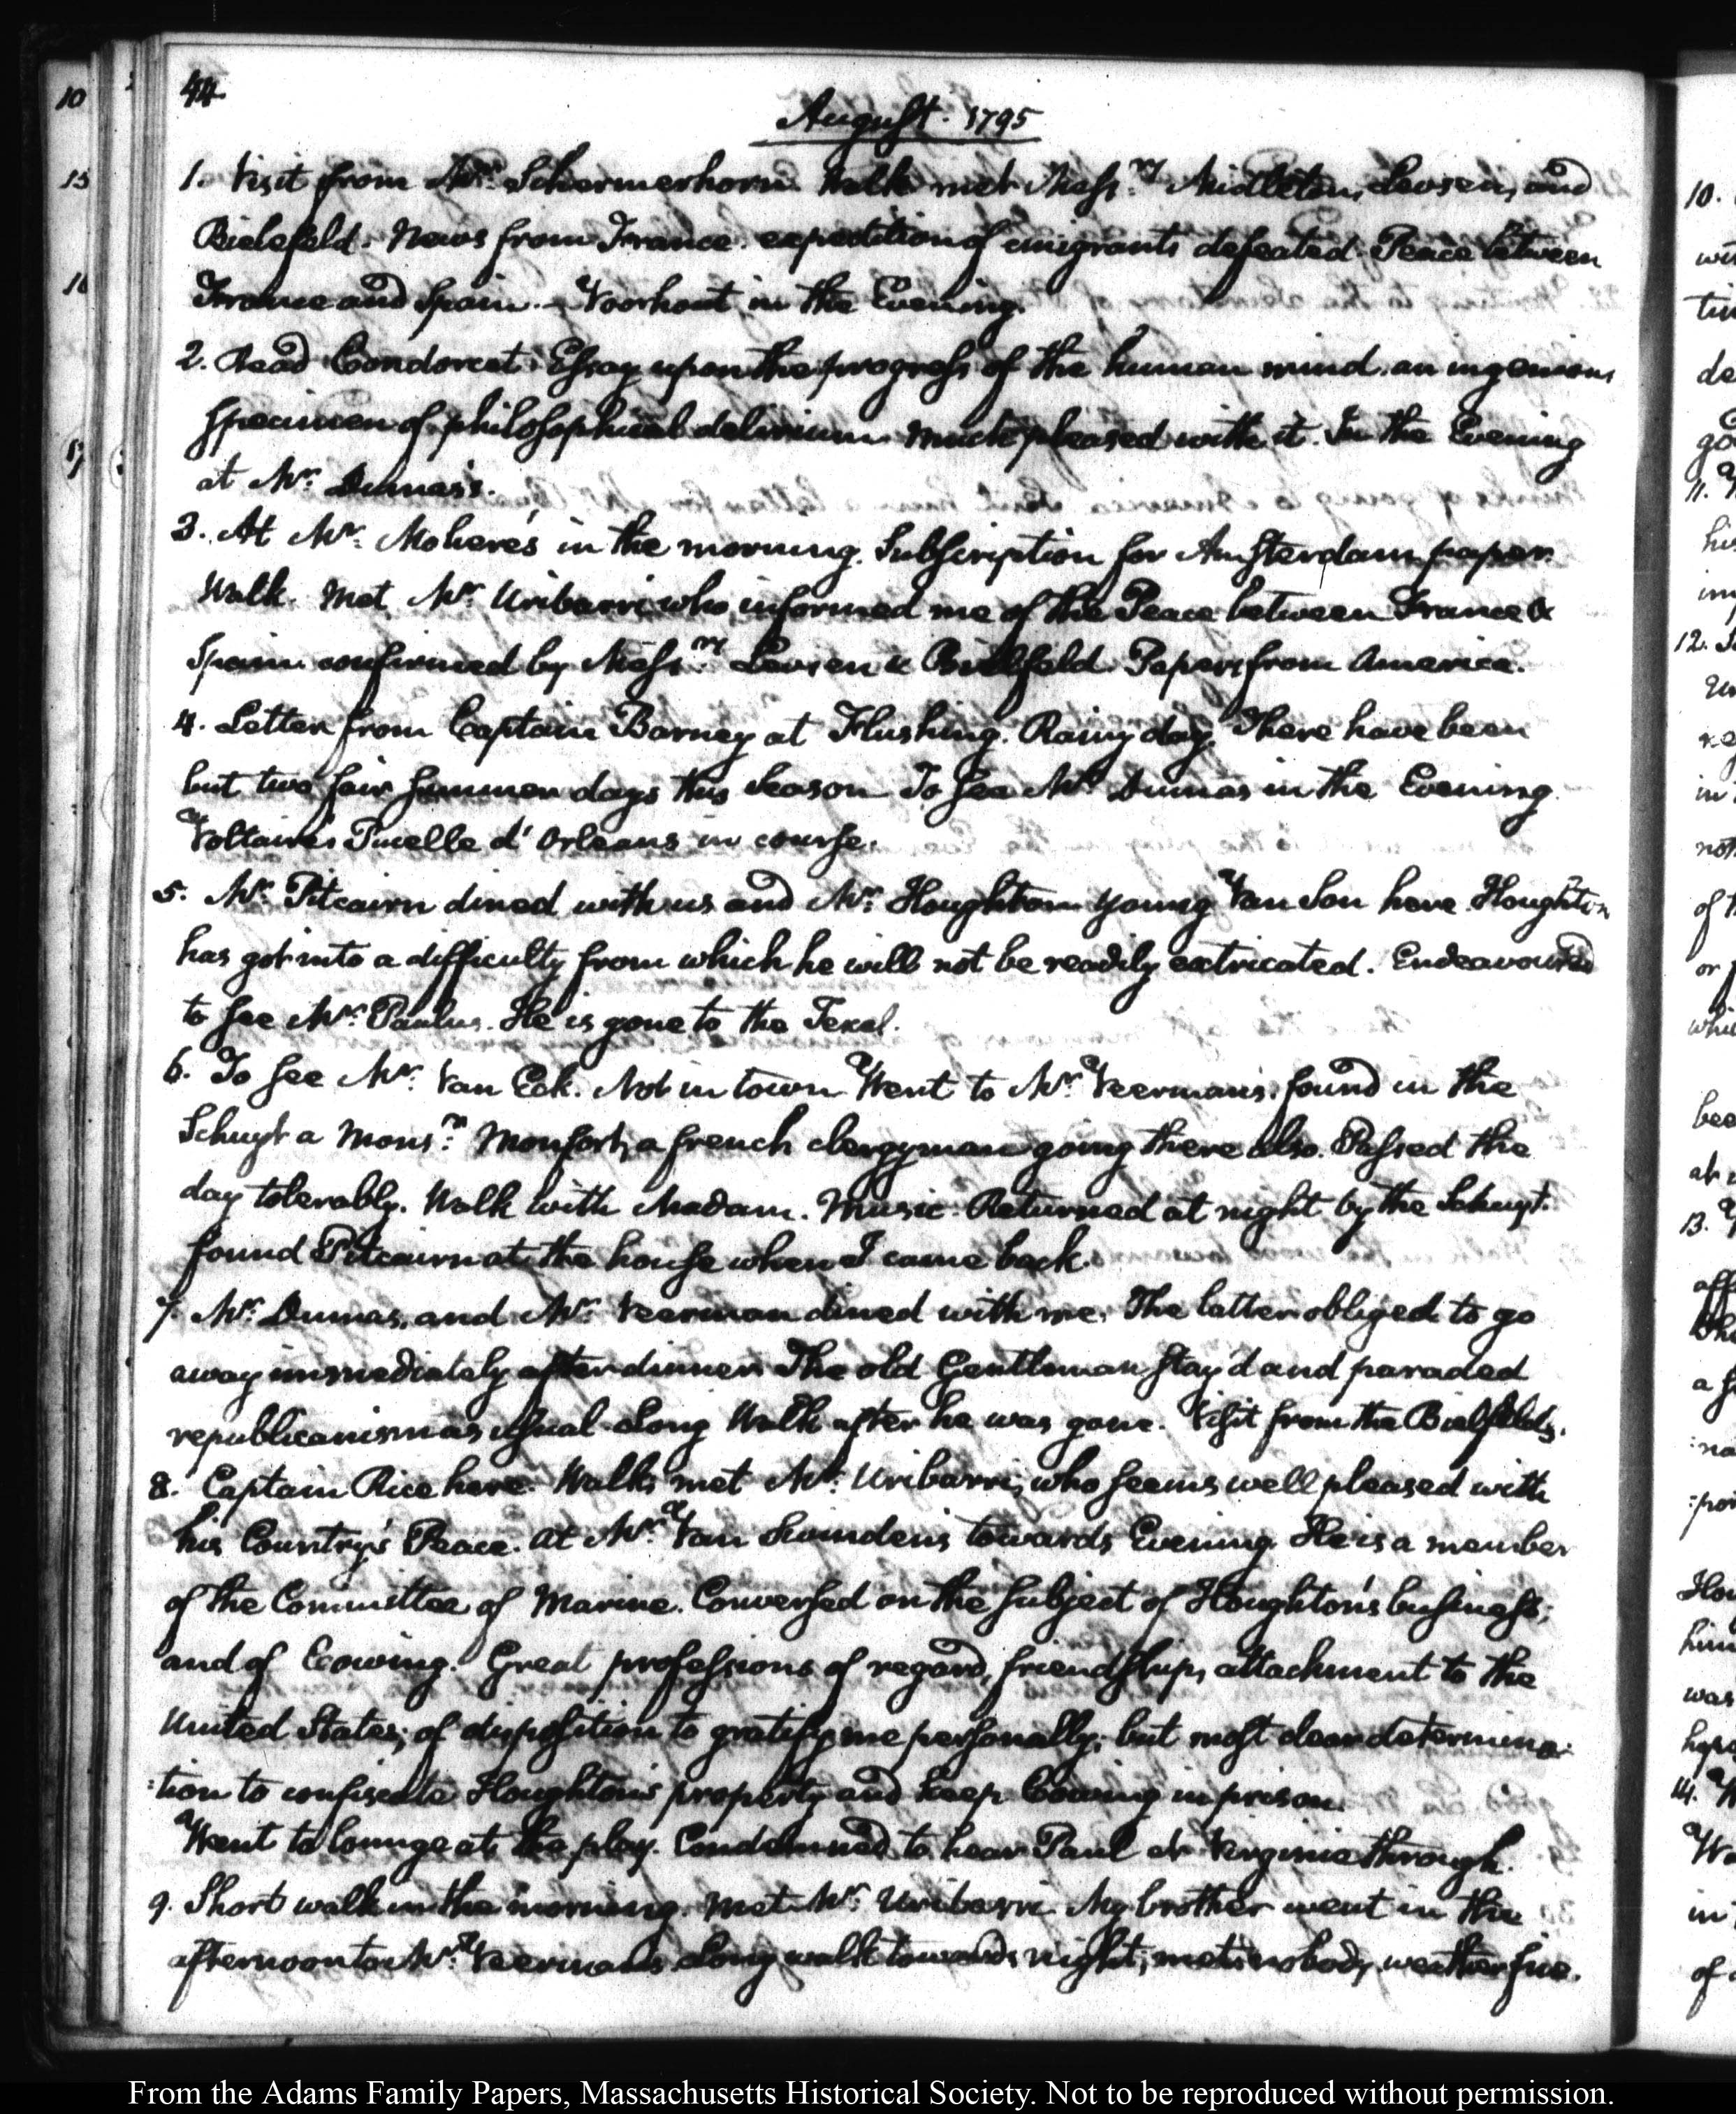 44.
August. 1795
1. Visit from Mr: Schermerhorn. Walk met Mess.rs Midleton, Levsen, and
Bielefeld. News from France. expedition of emigrants defeated. Peace between
France and Spain. — Voorhout in the Evening.
2. Read Condorcet's Essay upon the progress of the human mind. an ingenious
specimen of philosophical delirium. Much pleased with it. In the Evening
at Mr: Dumas's.
3. At Mr: Moliere's in the morning. Subscription for Amsterdam paper.
Walk. Met Mr: Uribarri who informed me of the Peace between France &
Spain confirmed by Mess.rs Levsen & Bielfeld. Papers from America.
4. Letter from Captain Barney at Flushing. Rainy day. There have been
but two fair summer days this Season. To see Mr: Dumas in the Evening.
Voltaire's Pucelle d'Orleans in course.
5. Mr: Pitcairn dined with us and Mr: Houghton. Young Van Son here. Houghton
has got into a difficulty from which he will not be readily extricated. Endeavoured
to see Mr: Paulus. He is gone to the Texel.
6. To see Mr: Van Eck. Not in town. Went to Mr: Veerman's. found in the
Schuyt a Mons.r Monfort, a french clergyman going there also. Passed the
day tolerably. Walk with Madam. Music. Returned at night by the Schuyt.
found Pitcairn at the house when I came back.
7. Mr: Dumas, and Mr: Veerman dined with me. The latter obliged to go
away immediately after dinner. The old Gentleman stay'd and paraded
republicanism as usual. Long Walk after he was gone. Visit from the Bielfelds.
8. Captain Rice here. Walk, met Mr: Uribarri, who seems well pleased with
his Country's Peace. At Mr: Van Swinden's towards Evening. He is a member
of the Committee of Marine. Conversed on the subject of Houghton's business,
and of Cowing. Great professions of regard, friendship, attachment to the
United States; of disposition to gratify me personally; but most clear determina-
:tion to confiscate Houghton's property and keep Cowing in prison.
Went to lounge at the play. Condemned to hear Paul et Virginie through.
9. Short walk in the morning. Met Mr: Uribarri. My brother went in the
afternoon to Mr: Veerman's. Long walk towards night; met nobody, weather fine.
From the Adams Family Papers, Massachusetts Historical Society. Not to be reproduced without permission.